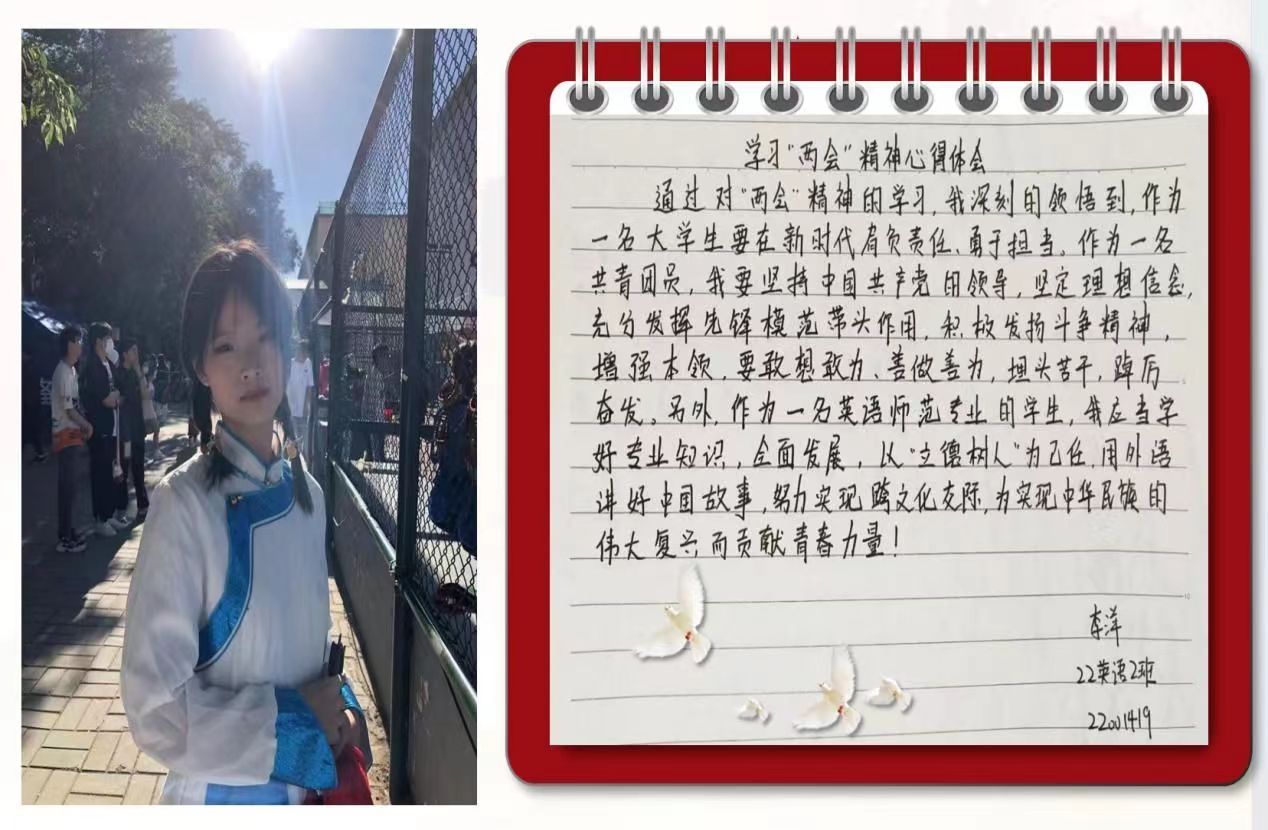 学习“两会”精神心得体会
通过对“两会”精神的学习,我深刻的领悟到,作为
一名大学生要在新时代肩负责任、勇于担当。作为一名
共青团员,我要坚持中国共产党的领导,坚定理想信念,
充分发挥先锋模范带头作用,积极发扬斗争精神,
增强本领,要敢想敢为、善做善为,埋头苦干,踔厉
奋发。另外,作为一名英语师范专业的学生,我应当学
好专业知识,全面发展,以“立德树人”为己任,用外语
讲好中国故事,努力实现跨文化交际,为实现中华民族的
伟大复兴而贡献青春力量!
李洋
22英语2班
22001419